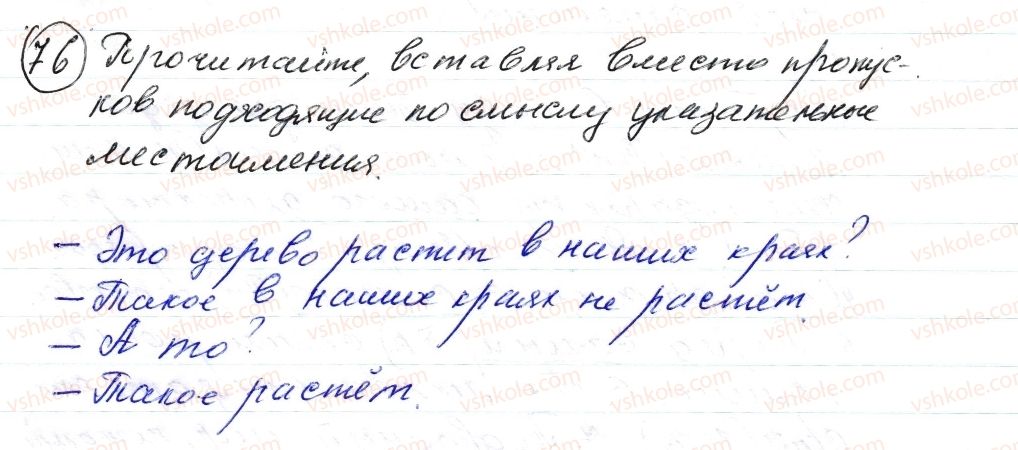 76 Прочитайте, вставляя вместо пропус-
ков подходящие по смыслу указательные
местоимения.
– Это дерево растет в наших краях?
– Такое в наших краях не растёт.
– А то?
– Такое растёт.